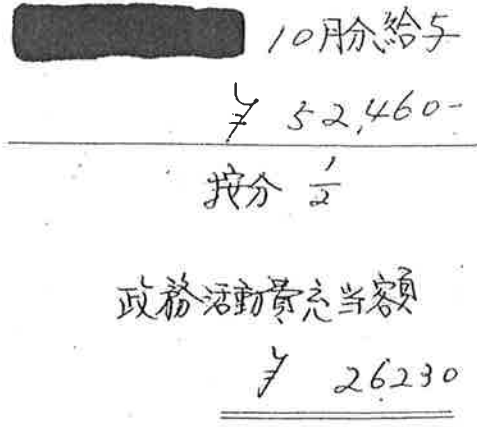 10月分給与
¥ 52,460-
按分 1/2
政務活動費充当額
¥ 26230